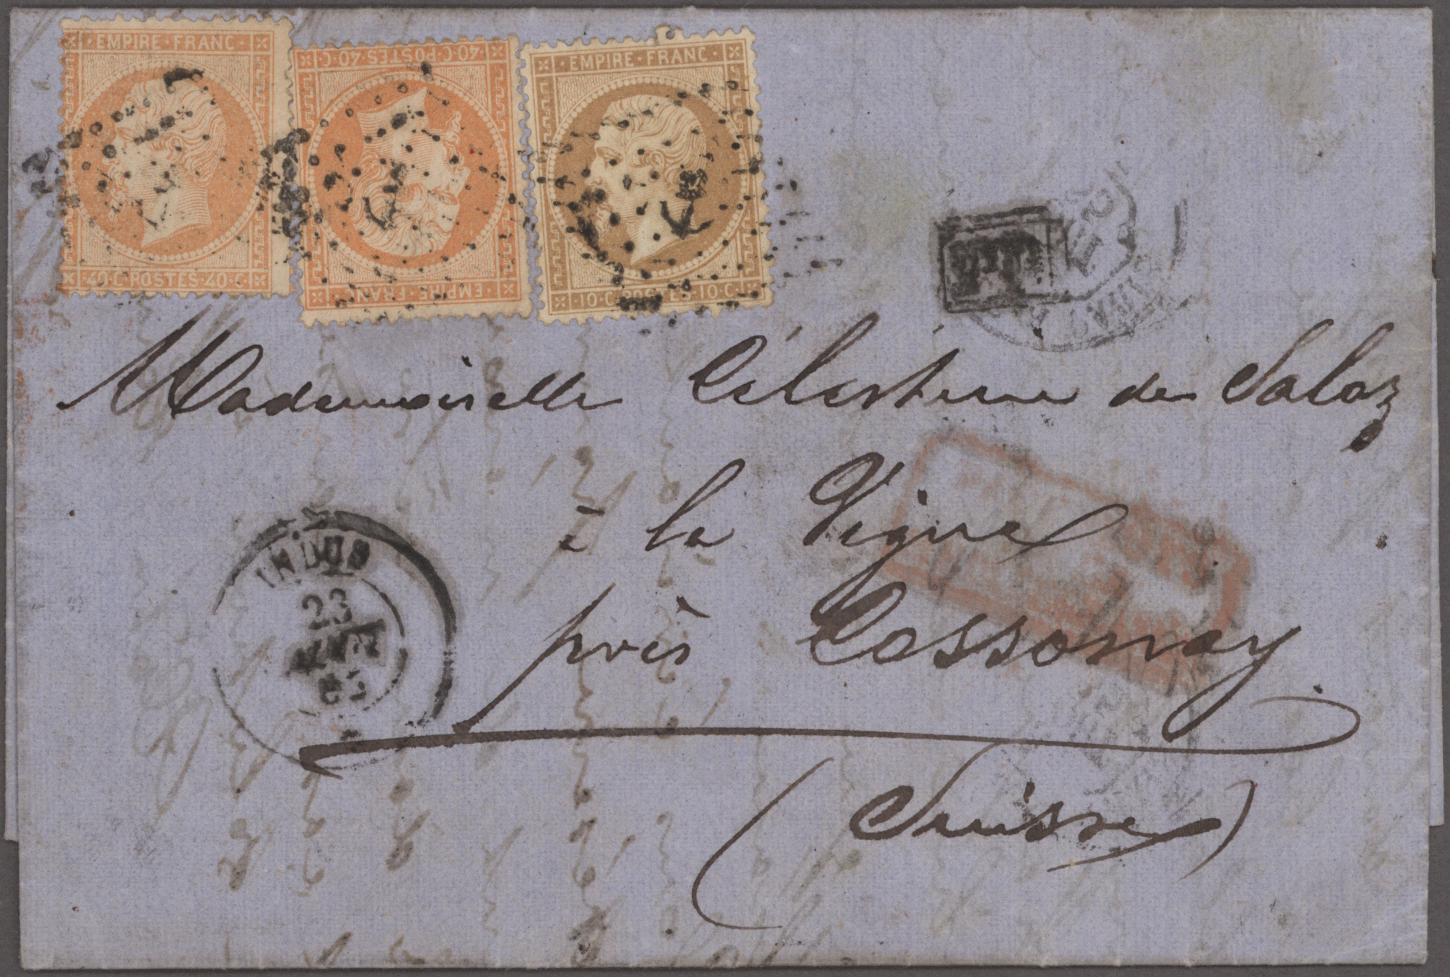 EMPIRE · FRANC
40 · C · POSTES · 40 · C
40 · C · POSTES · 40 · C
EMPIRE · FRANC
EMPIRE · FRANC
10 · C · POSTES · 10 · C
Mademoiselle Célestine de Saloz
à la Vigne
près Cossonay
(Suisse)
23
AOUT
65